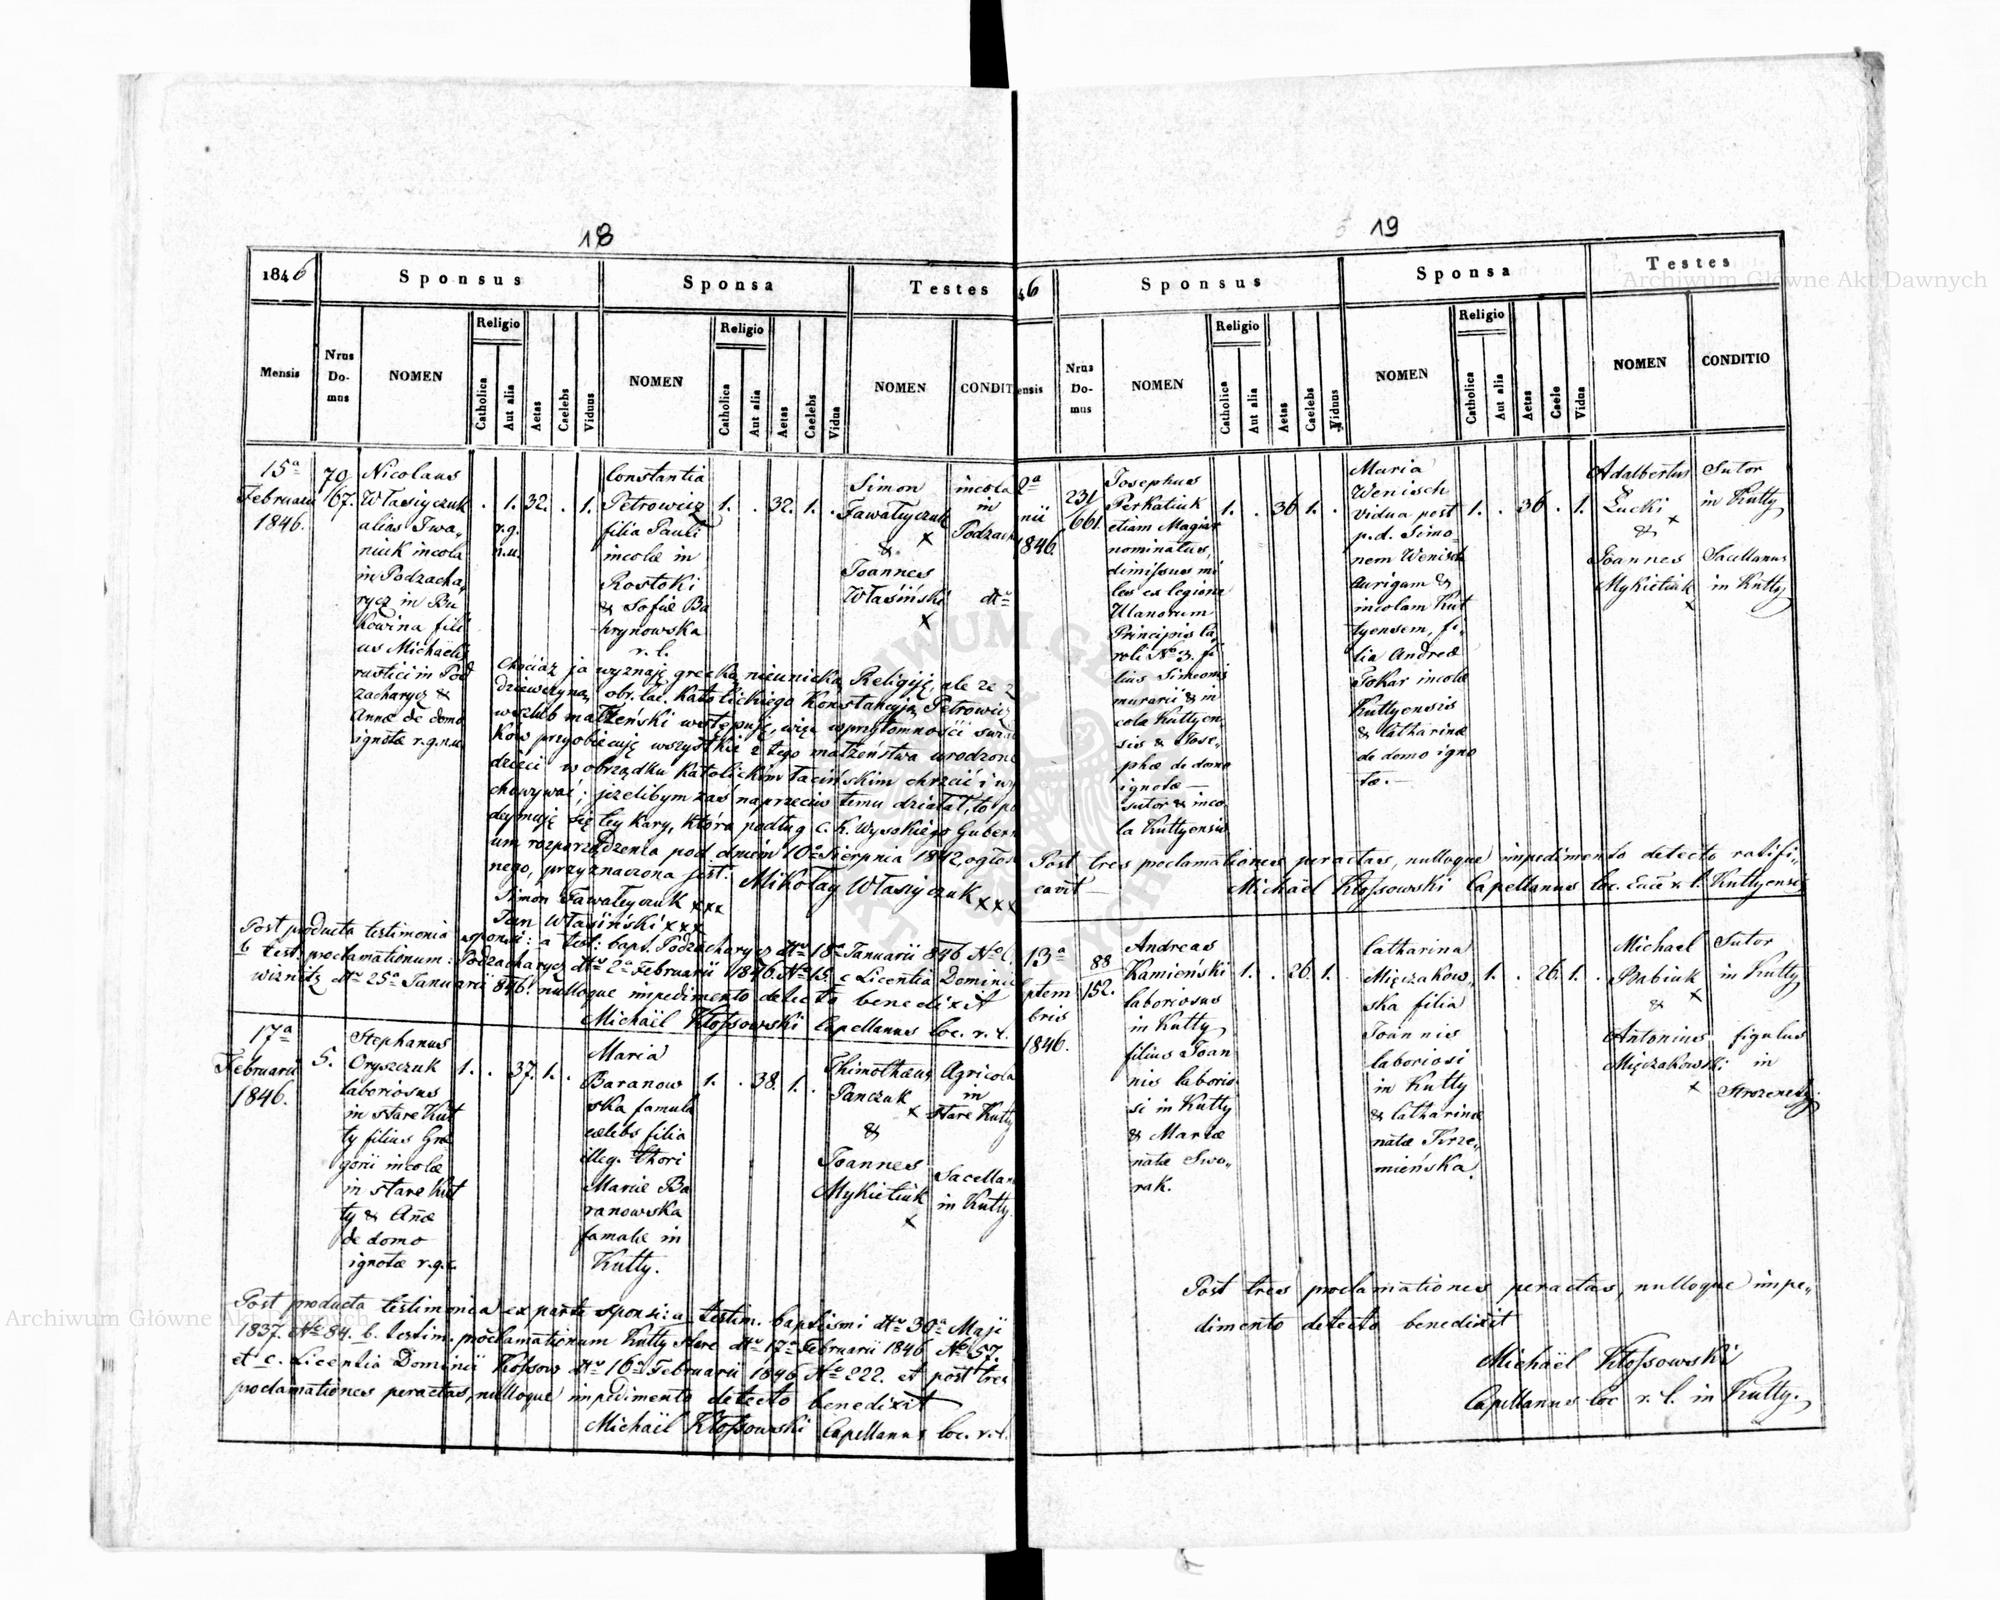 18
1846
Sponsus
Sponsa
Testes
Mensis
Nrus
Do-
mus
NOMEN
Religio
Catholica
Aut alia
Aetas
Caelebs
Viduus
NOMEN
Religio
Catholica
Aut alia
Aetas
Caelebs
Vidua
NOMEN
CONDIT
15a
Februarii
1846.
70
67.
Nicolaus
Własiyczuk
alias Iwa„
niuk incola
in Podzacha„
rycz in Bu
kowina fili
us Michaelis
rustici in Pod
zacharycz &
Annæ de domo
ignotæ r.g.n.u.
. 1. 32. . 1.
r.g.
n.u.
Constantia
Petrowicz
filia Pauli
incolæ in
Rostoki
& Sofiæ Ba
hrynowska
r. l.
1. . 32. 1. .
Simon
Fawałyczuk
x
&
Joannes
Własiński
x
incola
in
Podzach
dto
Chociaż ja wyznaję grecką nieunicką Religiję, ale że z
dziewczyną obr. łac. Katolickiego Konstancyją Petrowicz
w szlub małżeński wstępuję, więc w przytomności świad
ków przyobiecuję wszystkie z tego małżeństwa urodzone
dzieci w obrządku Katolickim łacińskim chrzcić i wy
chowywać; jeżelibym zaś naprzeciw temu działał, to po
deymuję się tey kary, która podług c. k. Wysokiego Gubern
um rozporządzenia pod dniem 10o Sierpnia 1842 ogłoszo
nego, przyznaczona jest. Mikołay Własiyczuk xxx
Simon Fawałeyczuk xxx
Jan Własiński xxx
Post producta testimonia sponsi: a test: bapt. Podzacharycz dto 18a Januarii 846 No 6.
b test. proclamationum: Podzacharycz dto 2a Februarii 1846. No 15. c Licentia Dominii
Wiznitz dto 25a Januarii 846. nulloque impedimento detecto benedixit
Michaël Kłossowski Capellanus loc. r. l.
17a
Februarii
1846.
5.
Stephanus
Oryszczuk
laboriosus
in stare Kut
ty filius Gre
gorii incolæ
in stare Kut
ty & Añæ
de domo
ignotæ r.g.c.
1. . 37. 1. .
Maria
Baranow
ska famula
cælebs filia
illeg. thori
Mariæ Ba
ranowska
famulæ in
Kutty.
1. . 38. 1. .
Thimothæus
Panczuk
x
&
Joannes
Mykietiuk
x
Agricola
in
stare Kutty
Sacellan
in Kutty.
Post producta testimonia ex parte sponsi: a testim. baptismi dto 30a Maji
1837. No 84. b. testim. proclamationum Kutty stare dto 17a Februarii 1846 No 57
et c. Licentia Dominii Kossow dto 16a Februarii 1846 No 222. et post tres
proclamationes peractas, nulloque impedimento detecto benedixit
Michaël Kłossowski Capellanus loc. r. l.
19
46
Sponsus
Sponsa
Testes
ensis
Nrus
Do-
mus
NOMEN
Religio
Catholica
Aut alia
Aetas
Caelebs
Viduus
NOMEN
Religio
Catholica
Aut alia
Aetas
Caele
Vidua
NOMEN
CONDITIO
2a
nii
1846
231
661.
Josephus
Perkatiuk
etiam Magiar
nominatus,
dimissus mi
les ex legione
Ulanorum
Principis Ca„
roli No 3. fi
lius Simeonis
murarii & in
cola Kuttyen„
sis & Jose„
phæ de domo
ignotæ —
sutor & inco
la Kuttyensis
1. . 36 1. .
Maria
Wenisch
vidua post
p. d. Simo„
nem Wenisch
aurigam &
incolam Kut
tyensem, fi„
lia Andreæ
Tokar incolæ
Kuttyensis
& Catharinæ
de domo igno
tæ. —
1. . 36 . 1.
Adalbertus
Łucki
x
&
Joannes
Mykietiuk
x
Sutor
in Kutty
Sacellanus
in Kutty
Post tres proclamationes peractas, nulloque impedimento detecto ratifi„
cavit — Michaël Kłossowski Capellanus loc. Eccæ r. l. Kuttyensis
13a
ptem
bris
1846.
88
152.
Andreas
Kamieński
laboriosus
in Kutty
filius Joan
nis laborio
si in Kutty
& Mariæ
natæ Swo„
rak.
1. . 26. 1. .
Catharina
Mięczakow„
ska filia
Joannis
laboriosi
in Kutty
& Catharinæ
natæ Krze„
mieńska.
1. . 26. 1. .
Michael
Babiuk
x
&
Antonius
Mięczakowski
x
Sutor
in Kutty
figulus
in
Post tres proclamationes peractas, nulloque impe„
dimento detecto benedixit
Michaël Kłossowski
Capellanus loc r. l. in Kutty.
Archiwum Główne Akt Dawnych
Archiwum Główne Akt Dawnych